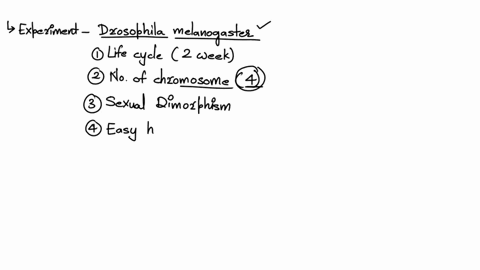 ↳ Experiment - Drosophila melanogaster ✓
① Life cycle (2 week)
② No. of chromosome (4)
③ Sexual Dimorphism
④ Easy h